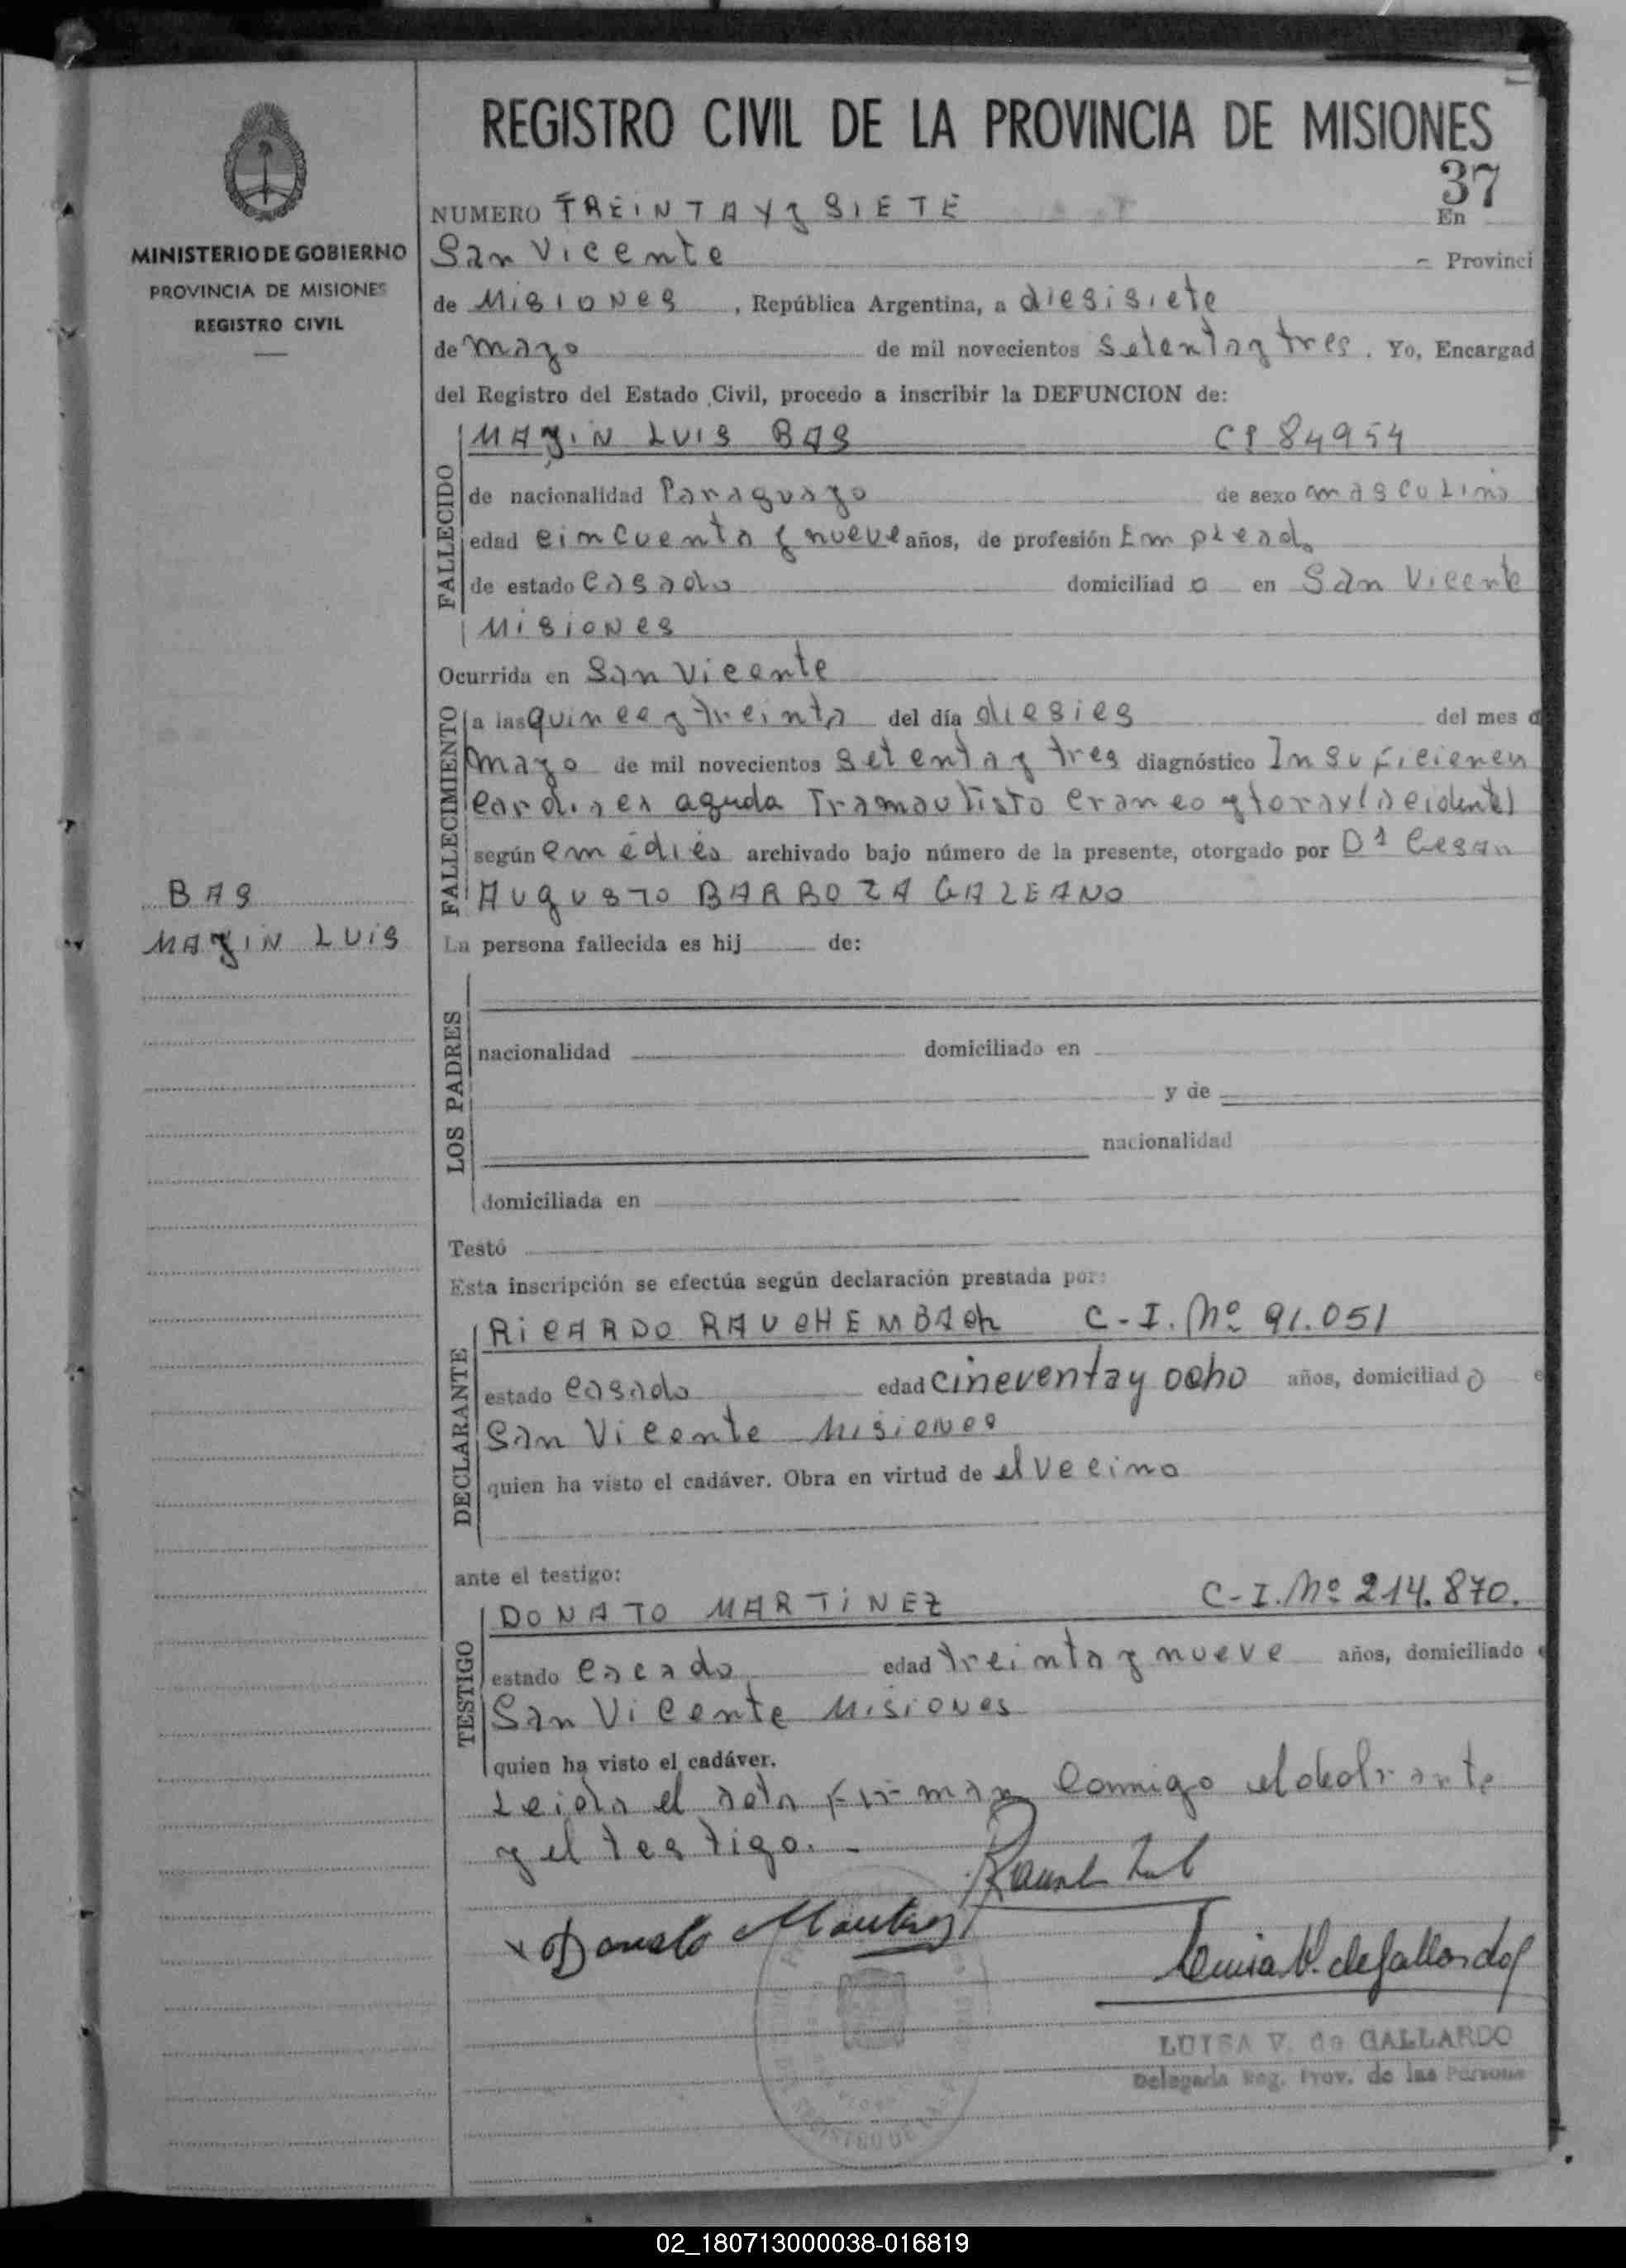 REGISTRO CIVIL DE LA PROVINCIA DE MISIONES
37
MINISTERIO DE GOBIERNO
PROVINCIA DE MISIONES
REGISTRO CIVIL
NUMERO TREINTA Y SIETE En
San Vicente - Provinci
de Misiones, República Argentina, a diesisiete
de mayo de mil novecientos setenta y tres. Yo, Encargad
del Registro del Estado Civil, procedo a inscribir la DEFUNCION de:
FALLECIDO
MAJIN LUIS BAS 84954
de nacionalidad Paraguayo de sexo masculino
edad cincuenta y nueve años, de profesión Empleado
de estado casado domiciliad o en San Vicente
Misiones
Ocurrida en San Vicente
FALLECIMIENTO
a las quince y treinta del día diesies del mes d
mayo de mil novecientos setenta y tres diagnóstico Insuficienci
cardiaca aguda craneo y torax
según archivado bajo número de la presente, otorgado por Cesar
Augusto BARBOZA GALEANO
BAS
MAJIN LUIS
La persona fallecida es hij de:
LOS PADRES
nacionalidad domiciliado en
y de
nacionalidad
domiciliada en
Testó
Esta inscripción se efectúa según declaración prestada por:
DECLARANTE
RICARDO RAUCHEMBACh C-I. Nº 91.051
estado casado edad cincuenta y ocho años, domiciliad o e
San Vicente Misiones
quien ha visto el cadáver. Obra en virtud de el vecino
ante el testigo:
TESTIGO
DONATO MARTINEZ C-I. Nº 214.870.
estado cacado edad treinta y nueve años, domiciliado e
San Vicente Misiones
quien ha visto el cadáver.
Leida el acta firman conmigo el
y el testigo.-
x Donato Martinez
Luisa V. de Gallardo
LUISA V. de GALLARDO
Delegada Reg. Prov. de las Persona
02_180713000038-016819